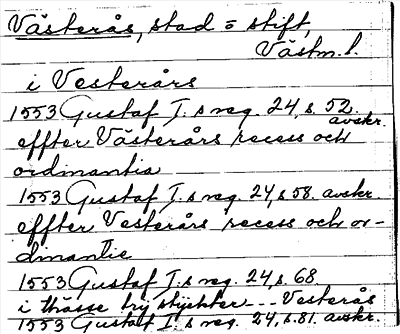 Västerås, stad = stift,
Västm. l.
i Vesterårs
1553 Gustaf I. s reg. 24, s. 52.
avskr.
effter Västerårs recess och
ordinantia
1553 Gustaf I. s reg. 24, s 58. avskr.
effter Vesterårs recess och or-
dinantie
1553 Gustaf I. s reg. 24, s. 68
i thässe try styckter -- Vesterås
1553 Gustaf I. s reg. 24, s. 81. avskr.